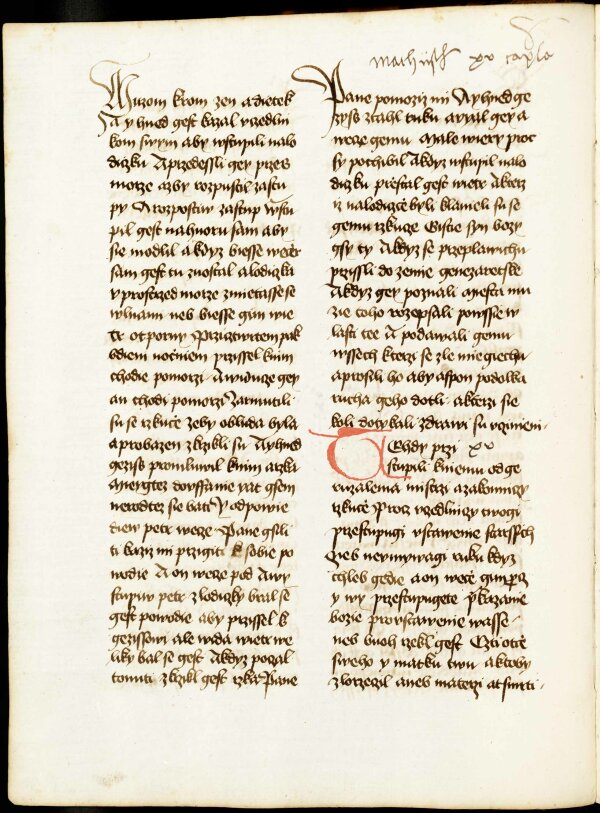 mathush xv capla
Muzom krom zen a dietek
A y hned gest kazal vczedlni
kom swym aby wstupili na lo
diczku A przedessli gey przes
morze azby rozpustil zastu
py A rozpostiw zastup wstu
pil gest na horu sam aby
sie modlil a kdyz biesse wecer
sam gest tu zuostal a lodiczka
v prostrzed morze zmietasse se
wlnami neb biesse gim wie
tr otporny Przi cztwrtem pak
bdieni noczniem przissel k nim
chodie po morzi A widucze gey
an chodi po morzi Zarmutili
su se rzkuce zeby obluda byla
a pro bazen zkrzikli su A y hned
gezis promluwil k nim arzka
Mieygtez dowffanie yat gsem
nerodtez sie bati Y odpowie
diew petr wece Pane gsi li
ti kaz mi przigiti k sobie po
wodie A on wece pod A wy
stupiw petr z lodiczky bral se
gest po wodie aby przissel k
gezissowi ale wida wietr we
liky bal se gest A kdyz poczal
tonuti zkrzikl gest rzka Pane
Pane pomoziz mi A y hned ge
zys ztahl ruku a yal gey a
wece gemu Male wiery procz
sy pochibil A kdyz wstupil na lo
diczku prestal gest wietr A kterz
iz na lodicce byli klaneli su se
gemu rzkuce Gistie syn bozy
gsy ty A kdyz se przeplawichu
przissli do zemie genezaretske
A kdyz gey poznali miesta mu
zie toho rozepsali po wsse w
lasti tee A podawali gemu
wssech kterzi se zle miegiechu
a prosili ho aby aspon podolka
rucha geho dotkli a kterzi sie
koli dotykali zdrawi su vczinieni
Tehdy przi xv
stupili k niemu od ge
ruzalema mistrzi a zakonniczy
rzkuce Procz vczedlniczy twogi
przestupugi vstawenie starssych
Neb neumywagi ruku kdyz
chleb gedie a on wece gim Procz
y wy przestupugete przikazanie
bozie pro vstawenie wasse
neb buoh rzekl gest Czti otce
sweho y matku twu a ktoby
zlorzeczil aneb materzi at smrti